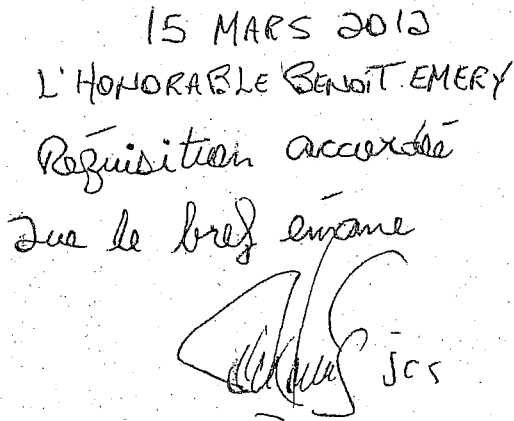 15 MARS 2012
L'HONORABLE BENOÎT EMERY
Réquisition accordée
Que le bref émane
jcs